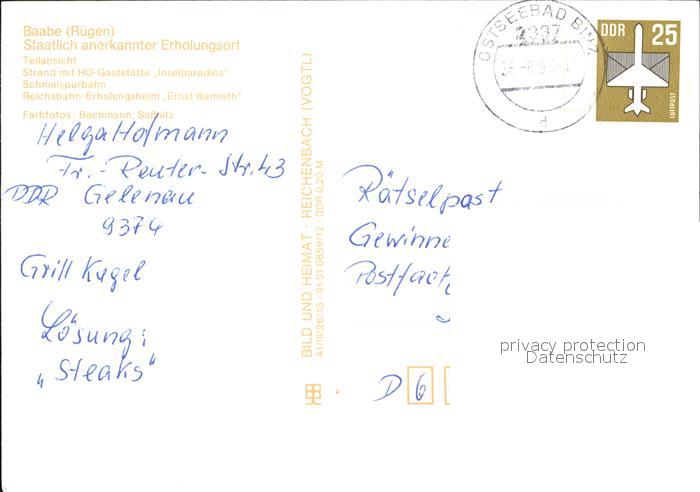 Baabe (Rügen)
Staatlich anerkannter Erholungsort
Teilansicht
Strand mit HO-Gaststätte „Inselparadies"
Schmalspurbahn
Reichsbahn-Erholungsheim „Ernst Kamieth"
Farbfotos: Bachmann, Saßnitz
Helga Hofmann
Fr.-Reuter-Str. 43
DDR Gelenau
9374
Grill Kugel
Lösung:
„Steaks"
BILD UND HEIMAT · REICHENBACH (VOGTL)
A1/III/26/13 · 01 01 0859/12 · DDR 0,20 M
OSTSEEBAD BINZ
2337
d
DDR 25
LUFTPOST
Rätselpost
Gewinne
Postfach
D 6
privacy protection
Datenschutz